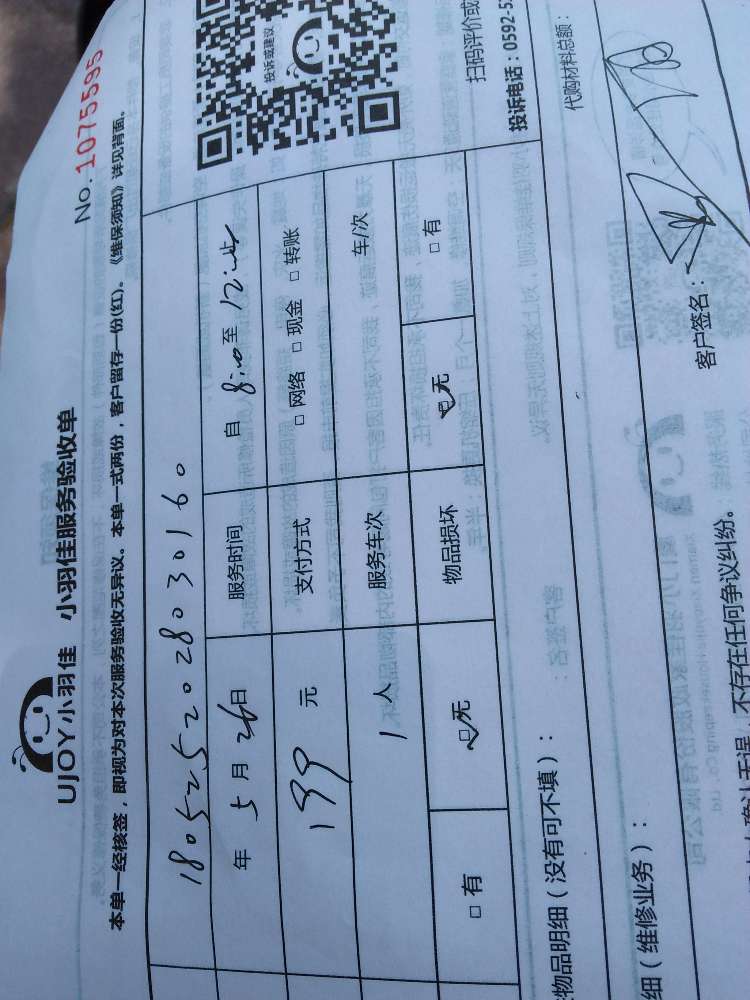 UJOY小羽佳 小羽佳服务验收单
No. 1075595
本单一经核签，即视为对本次服务验收无异议。本单一式两份，客户留存一份(红)。《维保须知》详见背面。
投诉或建议
1805252028030160
年 5 月 26 日 服务时间 自 8:00 至 12:
199 元 支付方式 □ 网络 □ 现金 □ 转账
1 人 服务车次 车/次
□ 有 □ 无 物品损坏 □ 无 □ 有
扫码评价或
投诉电话：0592-5
物品明细（没有可不填）：
代购材料总额：
细（维修业务）：
客户签名：
确认无误，不存在任何争议纠纷。